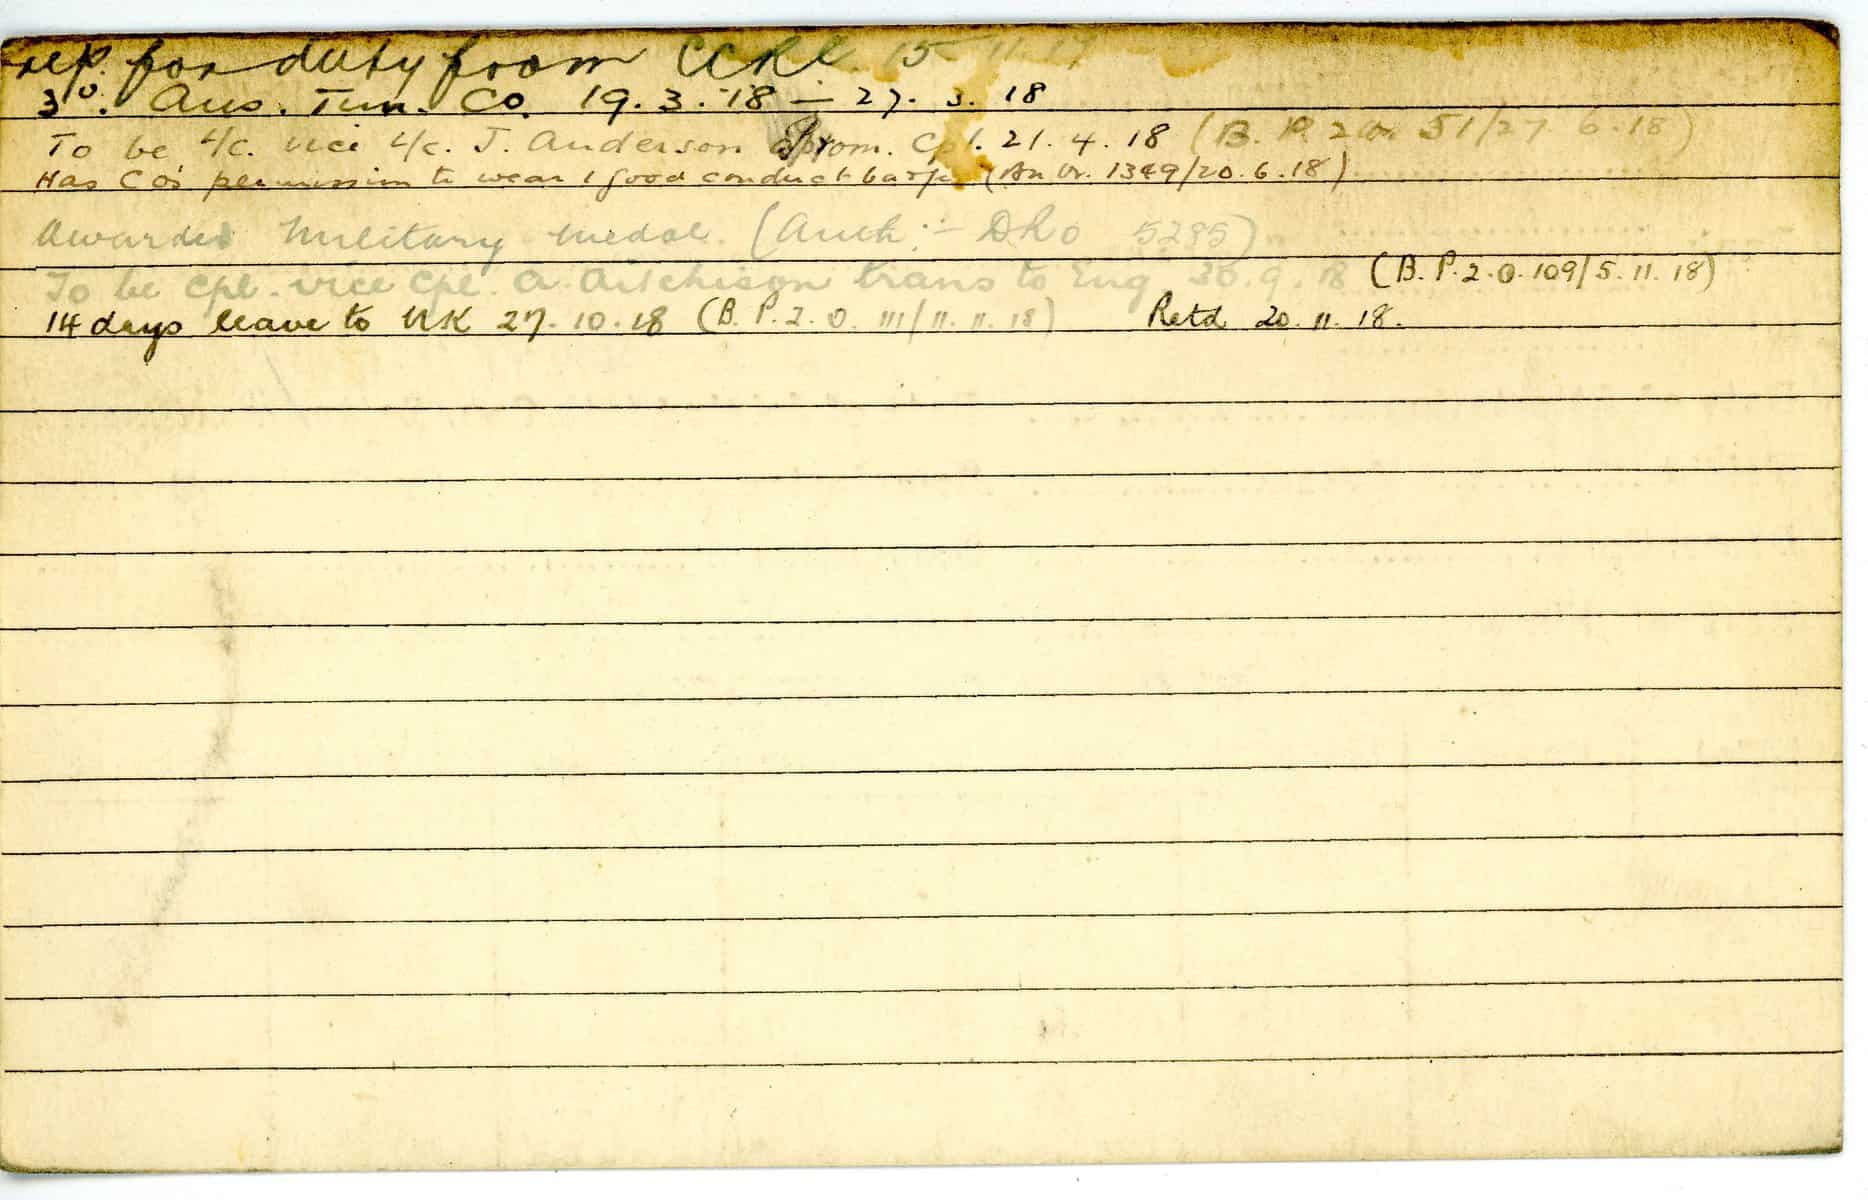 rep. for duty from CCRC. 15-11.17
3º. Aus. Tun. Co. 19.3.18 — 27.3.18
To be L/c. vice L/c. J. Anderson Prom. Cpl. 21.4.18 (B.P.2.O. 51/27.6.18)
Has CO's permission to wear 1 good conduct badge (An Or. 1349/20.6.18)
Awarded Military Medal. (Auth:- DRO 5295)
To be Cpl. vice Cpl. A. Aitchison trans to Eng 30.9.18 (B.P.2.O. 109/5.11.18)
14 days leave to UK 27.10.18 (B.P.2.O. 111/11.11.18) Retd 20.11.18.